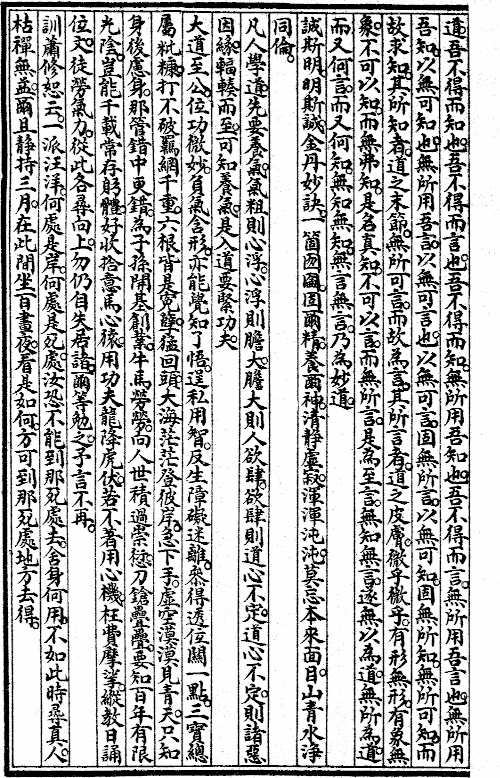 遺吾不得而知也吾不得而言也吾不得而知無所用吾知也吾不得而言無所用吾言也無所用
吾知以無可知也無所用吾言以無可言也以無可言固無所言以無可知固無所知無所可知而
故求知其所知者道之末節無所可言而故為言其所言者道之皮膚微乎微乎有形無形有象無
象不可以知而無弗知是名真知不可以言而無所言是為至言無知無言遂無以為道無所為道
而又何言而又何知無知無知無言無言乃為妙道
誠斯明明斯誠金丹妙訣一箇囫圇固爾精養爾神清靜虛寂渾渾沌沌莫忘本來面目山青水淨
同倫
凡人學道先要養氣氣粗則心浮心浮則膽大膽大則人欲肆欲肆則道心不定道心不定則諸惡
因緣輻輳而至可知養氣是入道要緊功夫
大道至公位功微妙負氣含形亦能覺知了悟逞私用智反生障礙迷離叅得透位關一點三寶總
屬粃糠打不破羈網千重六根皆是寃孽猛回頭大海茫茫登彼岸急下手虛空漠漠見青天只知
身後慮身那管錯中更錯為子孫開基創業牛馬勞勞向人世積過崇愆刀鎗疊疊要知百年有限
光陰豈能千載常存軀體好收拾意馬心猿用功夫龍降虎伏若不著用心機枉費摩挲縱教日誦
位文徒勞氣力從此各尋向上勿仍自失居諸爾等勉之予言不再
訓蕭修恕云一派汪洋何處是岸何處是死處汝恐不能到那死處去舍身何用不如此時尋真人
枯禪無益爾且靜持三月在此間坐百晝夜看是如何方可到那死處地方去得